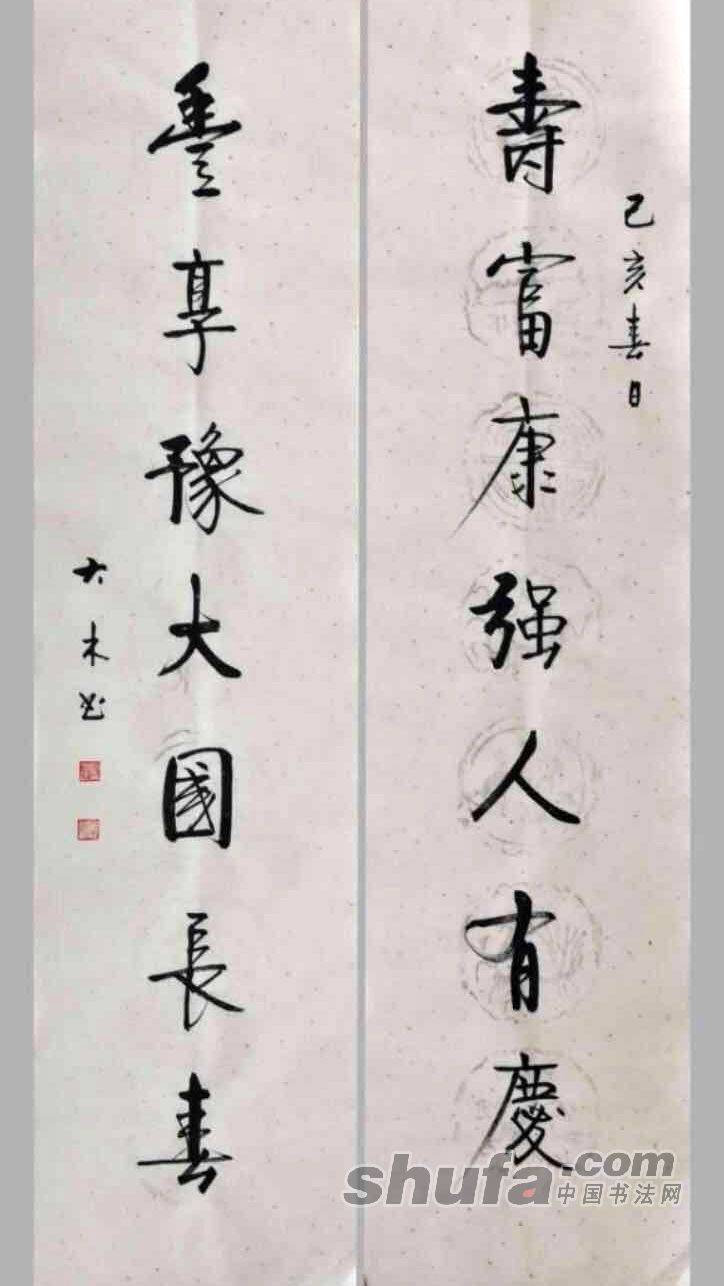 己亥春日
壽富康强人有慶
豐享豫大國長春
大木书
shufa.com
中国书法网